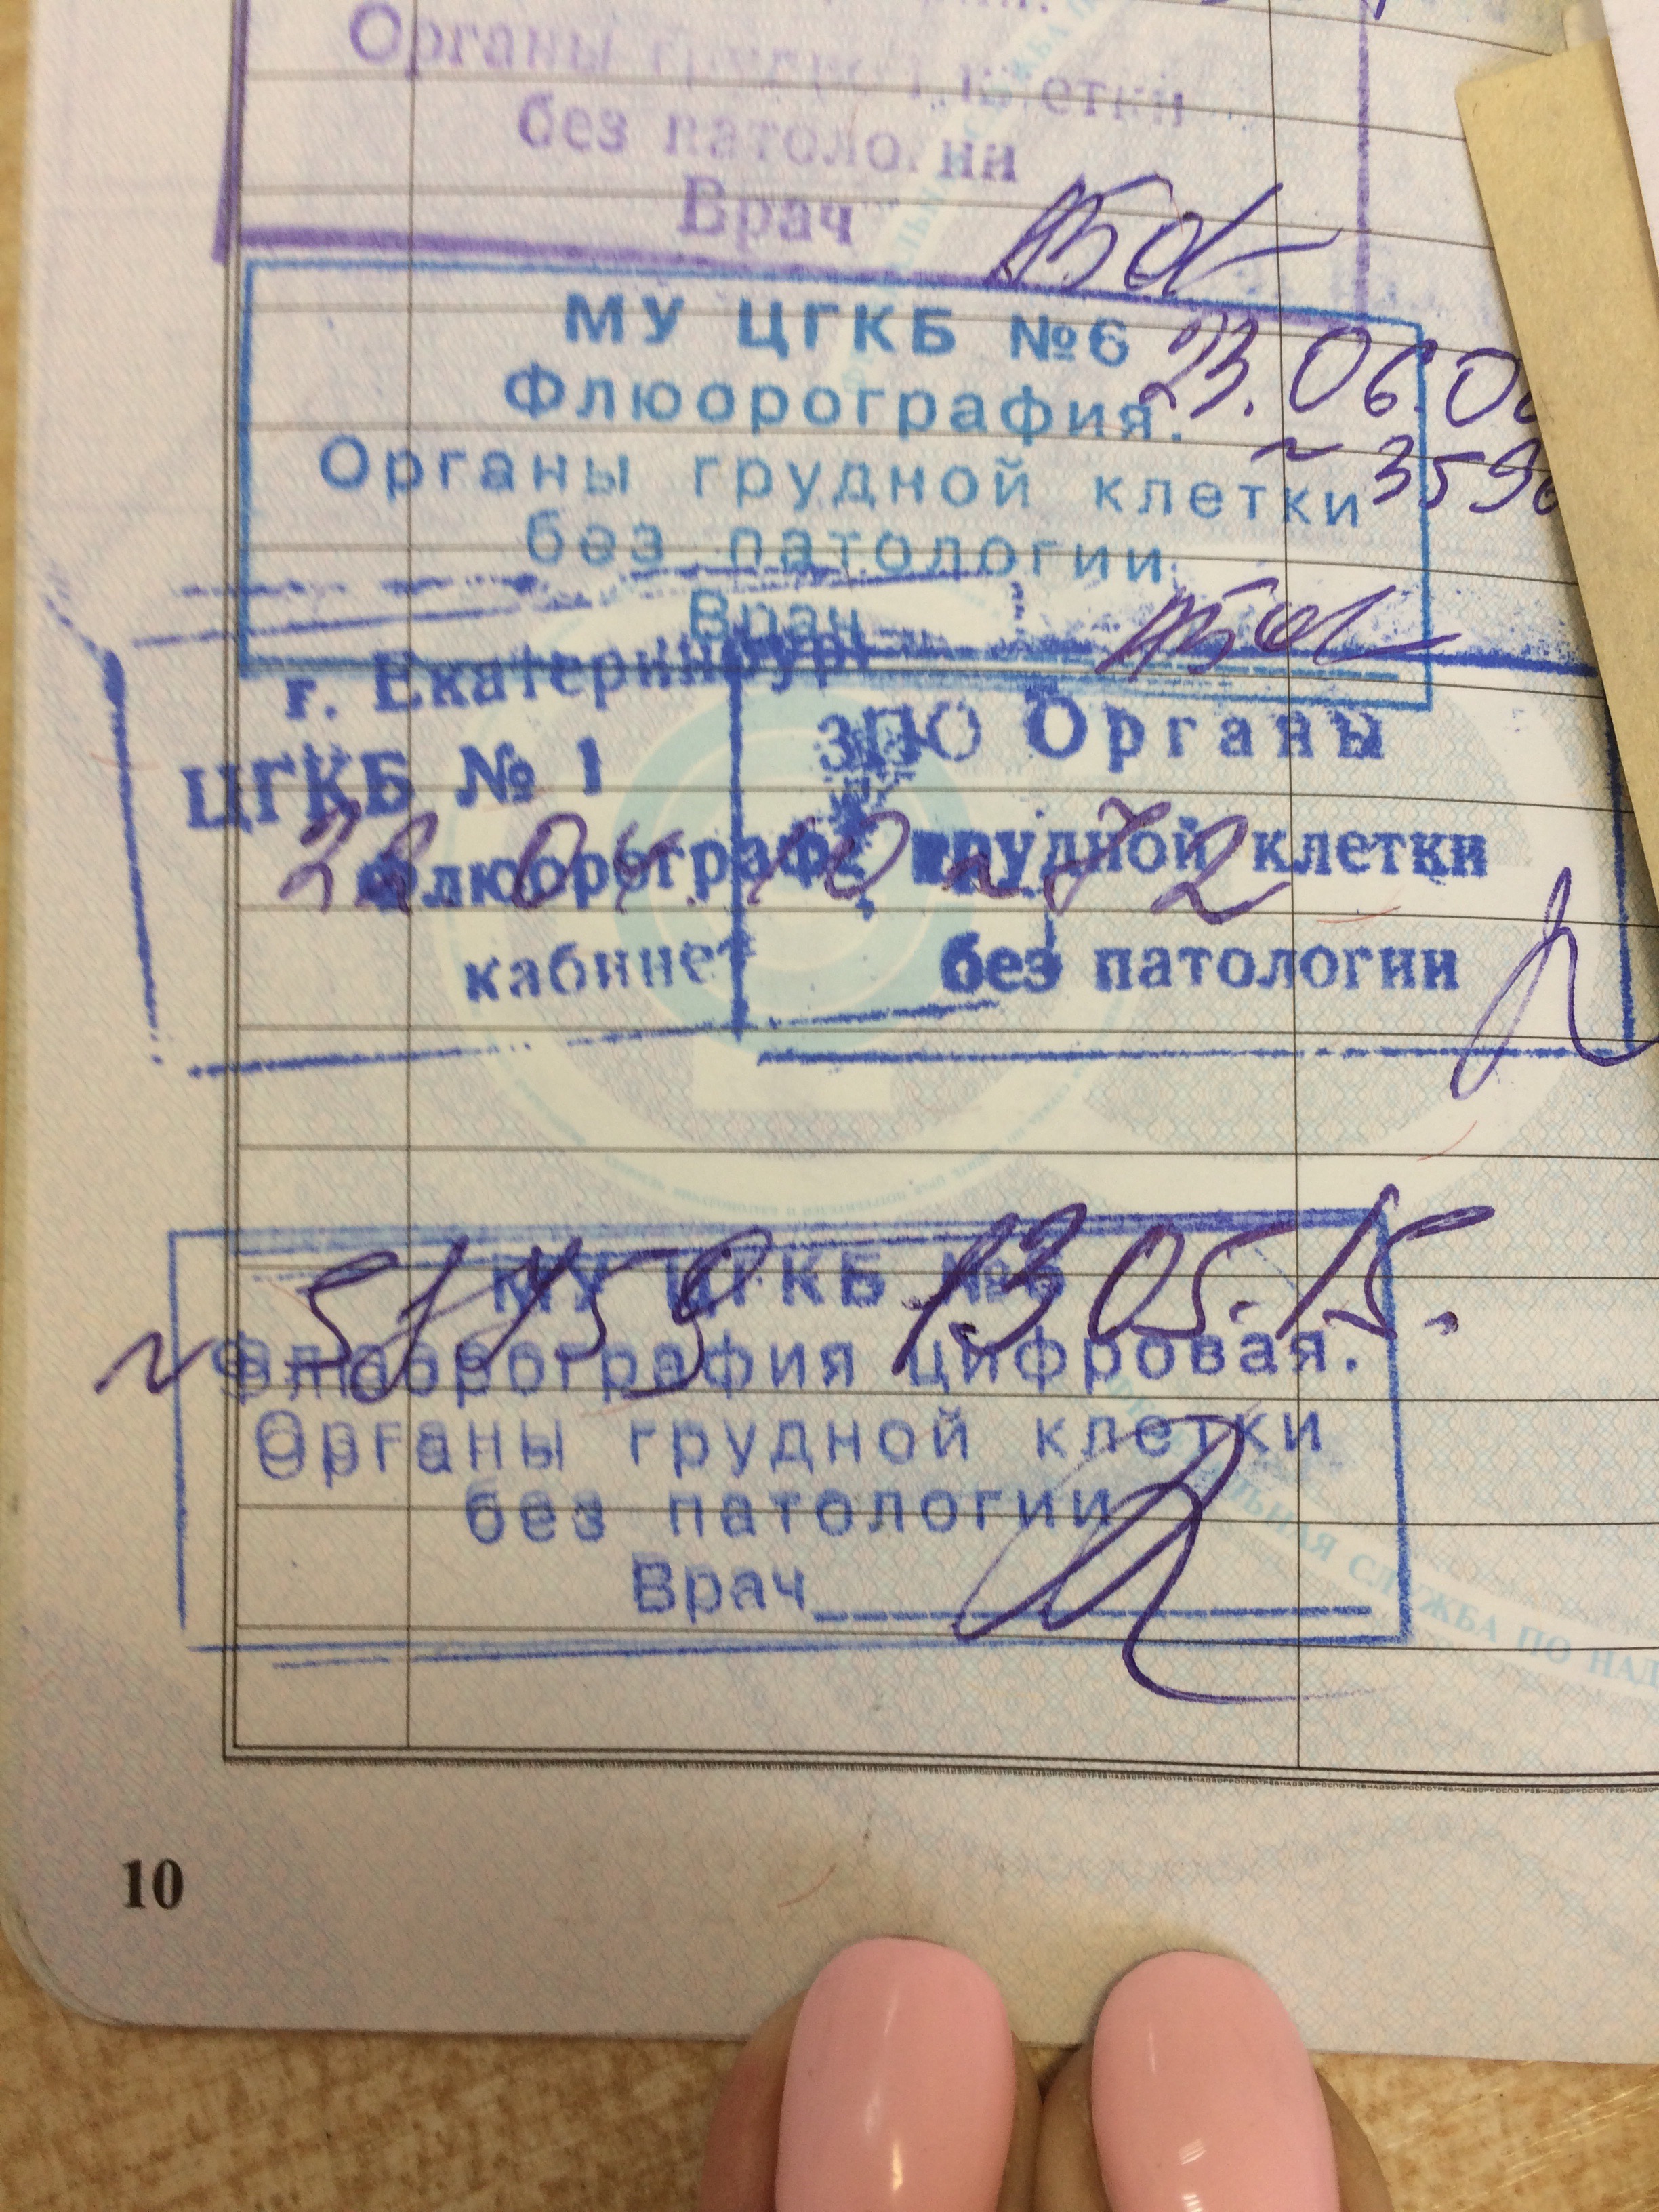 Органы грудной клетки
без патологии
Врач
МУ ЦГКБ №6
23.06.0
Флюорография.
~ 359
Органы грудной клетки
без патологии
Врач
г. Екатеринбург
ЦГКБ № 1
флюорограф
кабинет
ЗПО Органы
грудной клетки
без патологии
13.05.15.
МУ ЦГКБ №6
Флюорография цифровая.
Органы грудной клетки
без патологии
Врач
ЛЬНАЯ СЛУЖБА ПО НАД
10